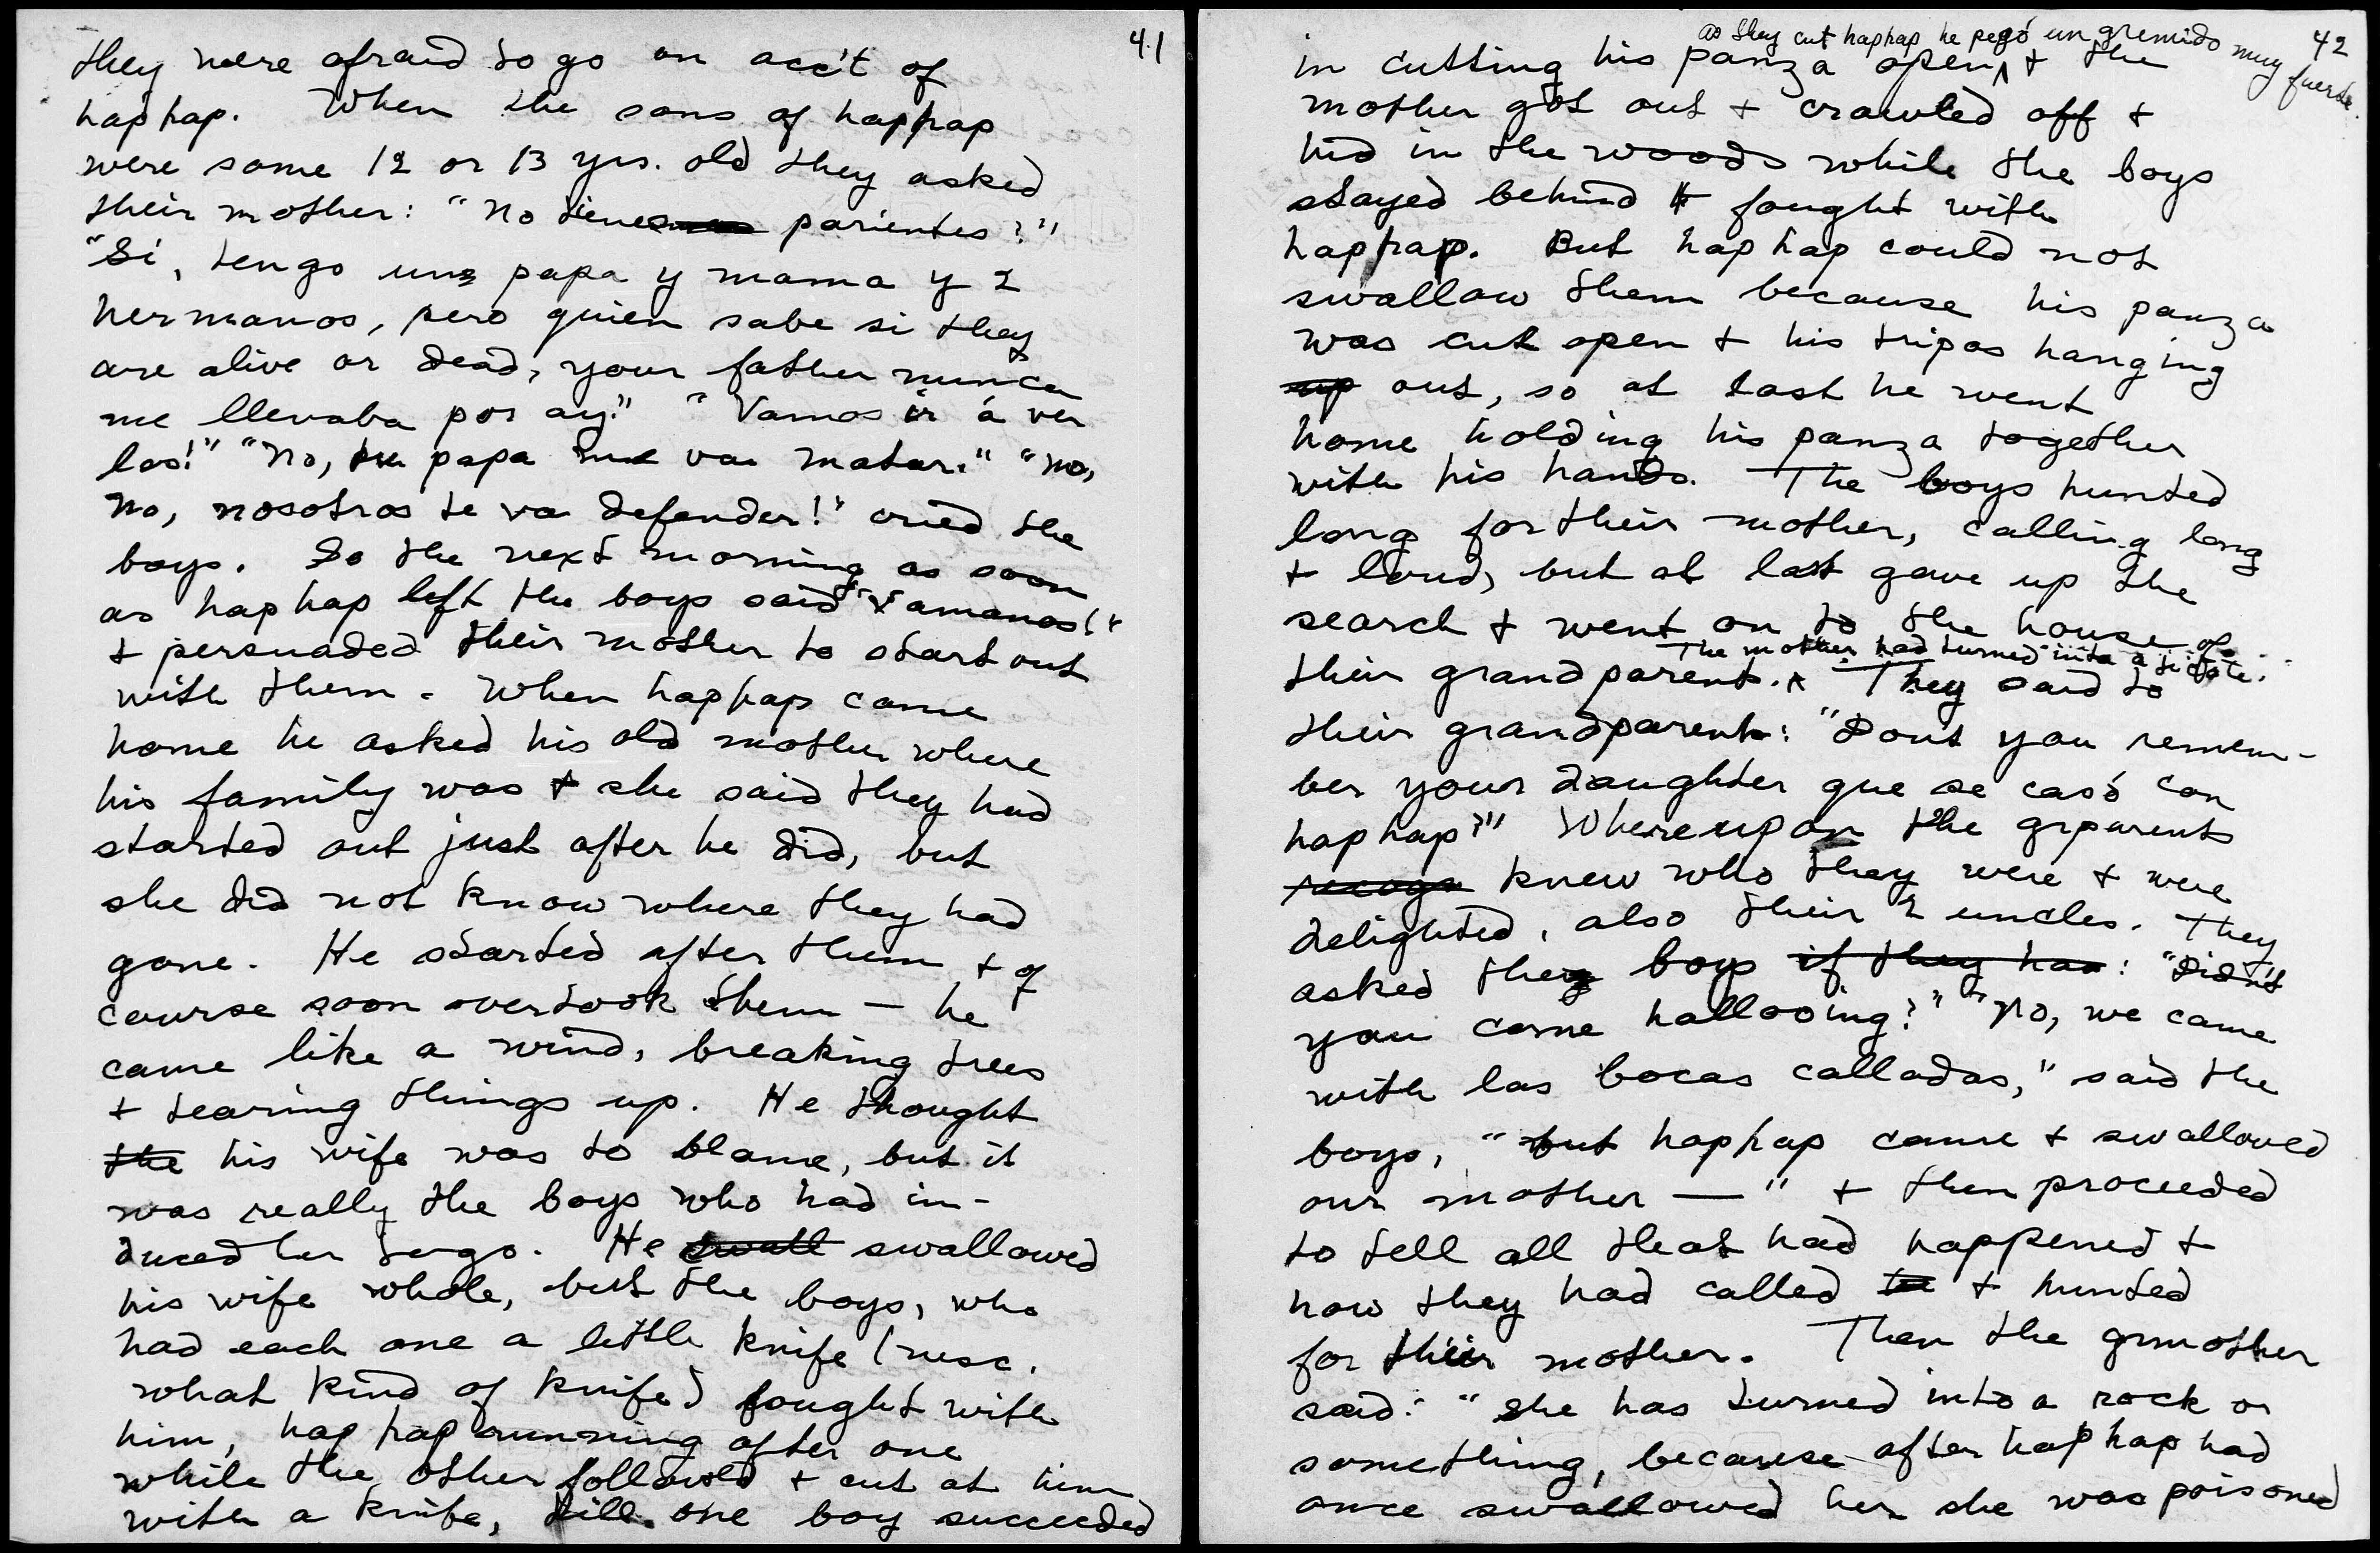 41
they were afraid to go on acc't of
haphap. When the sons of haphap
were some 12 or 13 yrs. old they asked
their mother: "No tienes parientes?"
"Si, tengo un papa y mama y 2
hermanos, pero quien sabe si they
are alive or dead, your father nunca
me llevaba por ay." "Vamos ir á ver
los!" "No, tu papa me va matar." "No,
no, nosotros te va defender!" cried the
boys. So the next morning as soon
as haphap left the boys said "Vamanos!"
& persuaded their mother to start out
with them. When haphap came
home he asked his old mother where
his family was & she said they had
started out just after he did, but
she did not know where they had
gone. He started after them & of
course soon overtook them — he
came like a wind, breaking trees
& tearing things up. He thought
the his wife was to blame, but it
was really the boys who had in-
duced her to go. He swall swallowed
his wife whole, but the boys, who
had each one a little knife (nesc.
what kind of knife) fought with
him, haphap running after one
while the other followed & cut at him
with a knife, till one boy succeeded
42
as they cut haphap he pegó un gremido muy fuerte.
in cutting his panza open, & the
mother got out & crawled off &
hid in the woods while the boys
stayed behind & fought with
haphap. But haphap could not
swallow them because his panza
was cut open & his tripas hanging
up out, so at last he went
home holding his panza together
with his hands. The boys hunted
long for their mother, calling long
& loud, but at last gave up the
search & went on to the house of
The mother had turned into a
their grandparent. They said to
their grandparent: "Dont you remem-
ber your daughter que se casó con
haphap?" Whereupon the grparents
recogn knew who they were & were
delighted, also their 2 uncles. They
asked the boys if they had: "Didn't
you come hallooing?" "No, we came
with las bocas calladas," said the
boys, "but haphap came & swallowed
our mother —" & then proceeded
to tell all that had happened &
how they had called & hunted
for their mother. Then the grmother
said: "She has turned into a rock or
something, because after haphap had
once swallowed her she was poisoned